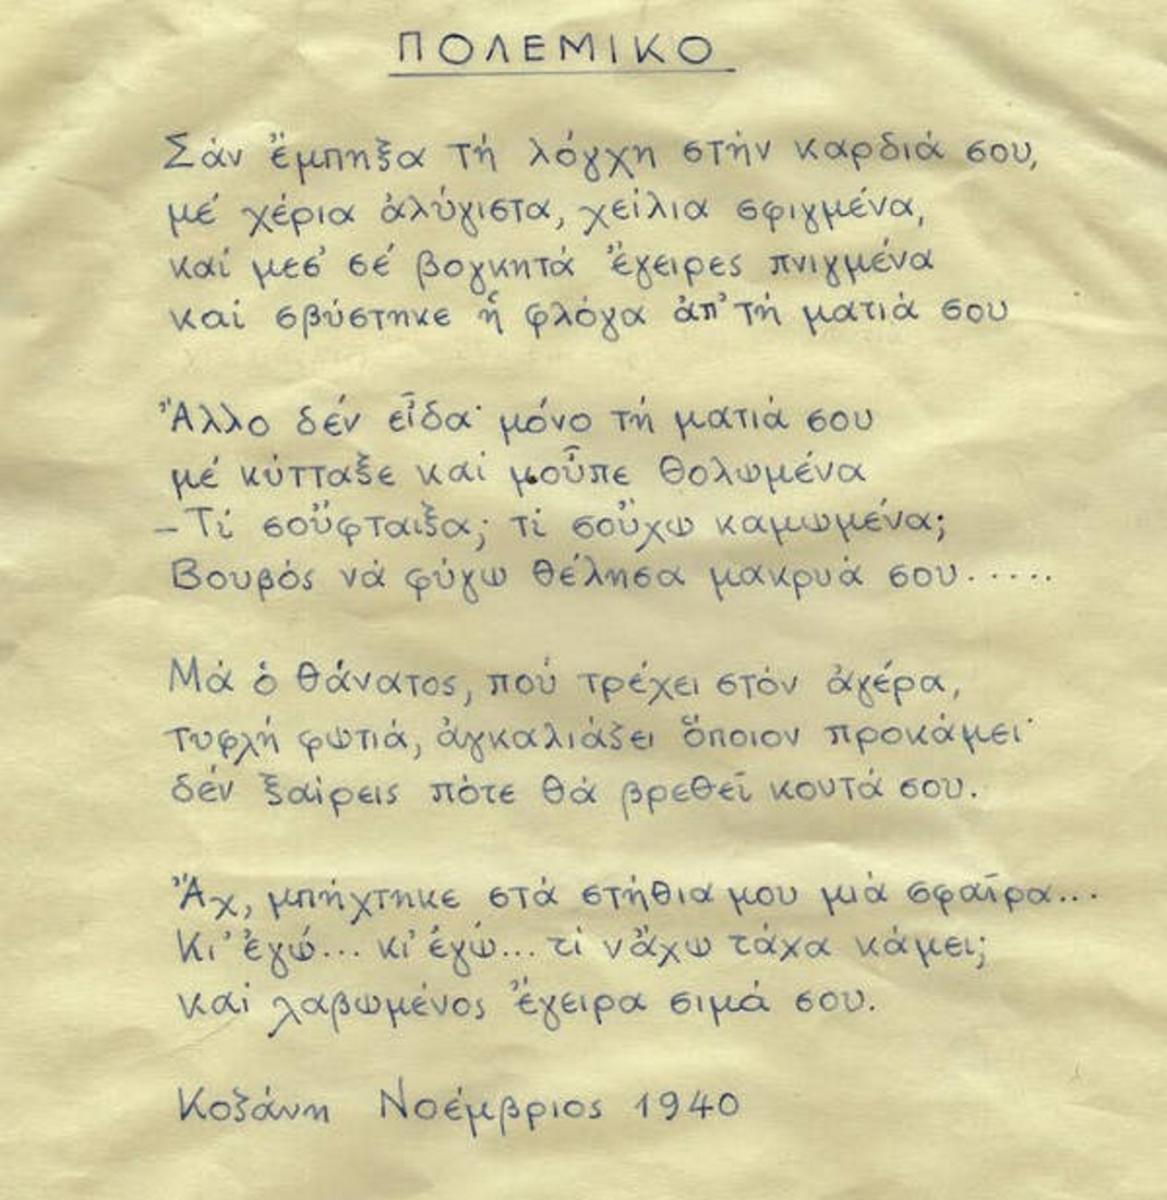 ΠΟΛΕΜΙΚΟ
Σάν ἔμπηξα τή λόγχη στήν καρδιά σου,
μέ χέρια ἀλύγιστα, χείλια σφιγμένα,
καί μεσ' σέ βογκητά ἔγειρες πνιγμένα
καί σβύστηκε ἡ φλόγα ἀπ' τή ματιά σου
Ἄλλο δέν εἶδα· μόνο τή ματιά σου
μέ κύτταξε καί μοὖπε θολωμένα
-Τί σοὔφταιξα; τί σοὔχω καμωμένα;
Βουβός νά φύγω θέλησα μακρυά σου.....
Μά ὁ θάνατος, πού τρέχει στόν ἀγέρα,
τυφλή φωτιά, ἀγκαλιάζει ὅποιον προκάμει·
δέν ξαίρεις πότε θά βρεθεῖ κοντά σου.
Ἄχ, μπήχτηκε στά στήθια μου μιά σφαῖρα...
Κι' ἐγώ... κι' ἐγώ... τί νἄχω τάχα κάμει;
καί λαβωμένος ἔγειρα σιμά σου.
Κοζάνη Νοέμβριος 1940